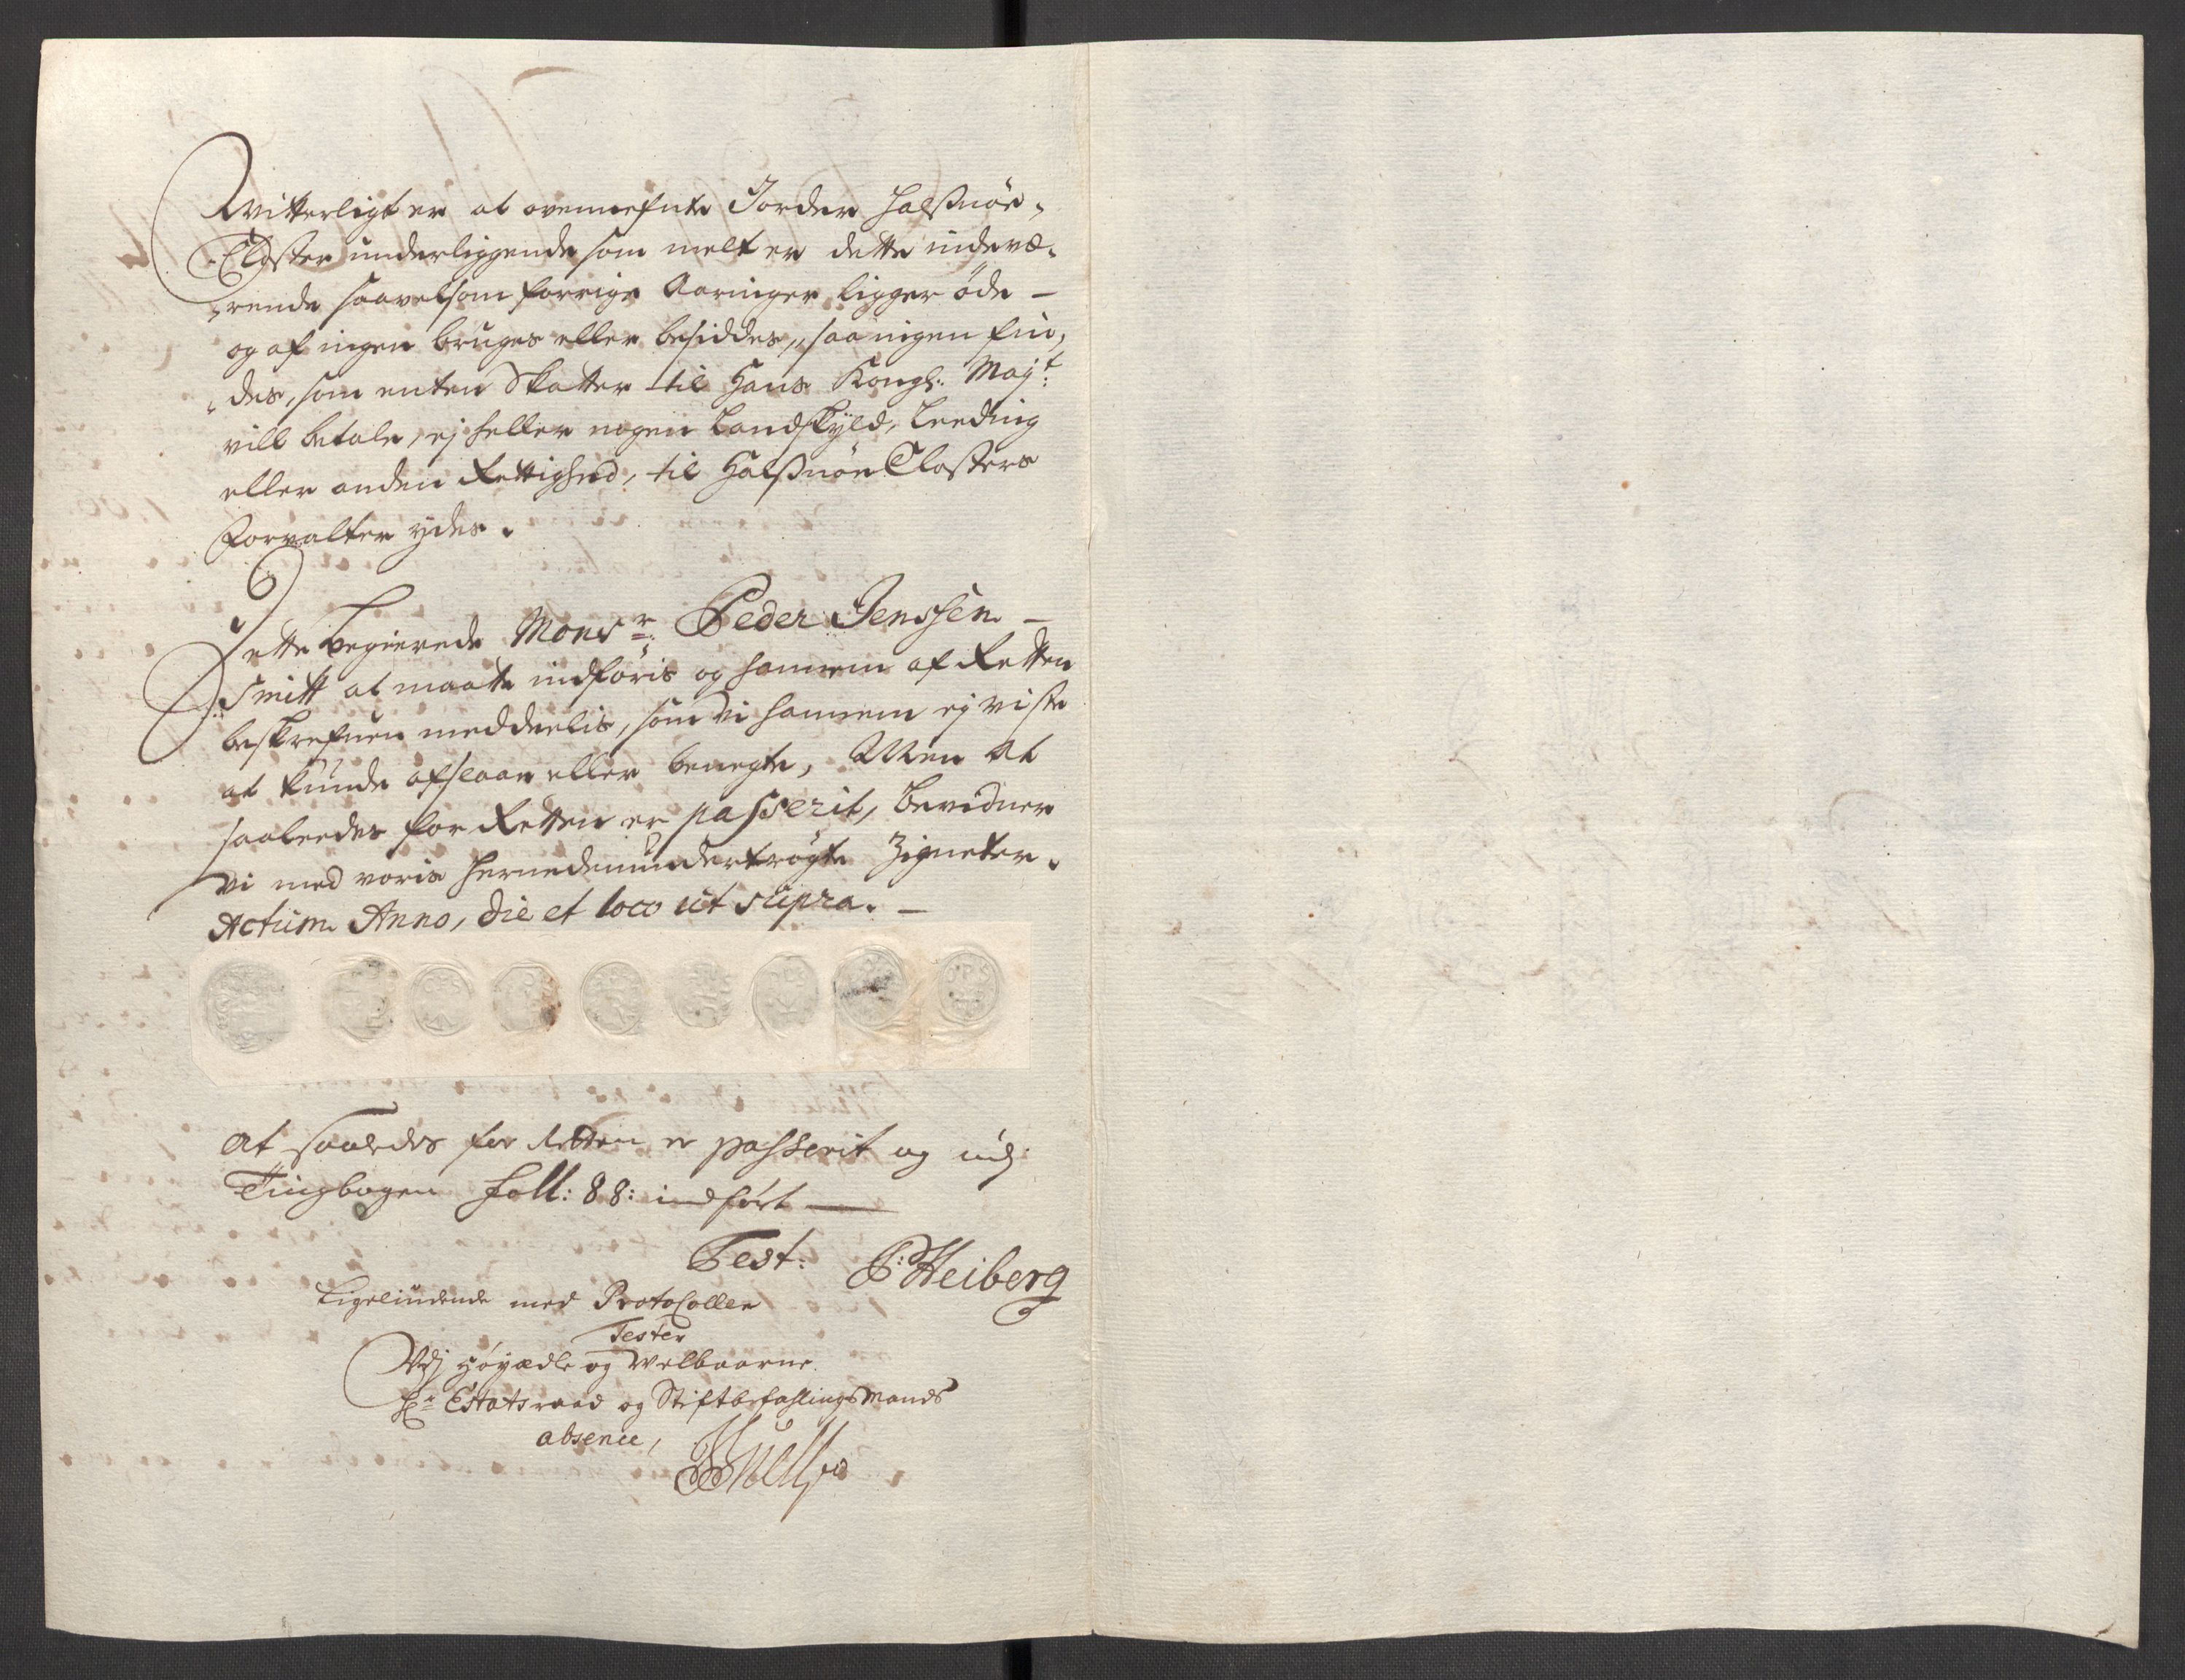 Witterligt er at ovennefnte Jorder Halsnöe-
Closter underliggende som melt er dette indevæ-
rende saavelsom forrige Aaringer ligger öde -
og af ingen bruges eller besiddes, saa ingen fin-
des, som enten Skatter til Hans Kongl: Majt:
vill betale, ej heller nogen Landskyld, Leeding
eller anden Rettighed, til Halsnöe Closters
Forvalter ydes.
Dette begierede Monsr: Peder Jenssen -
Smitt at maatte indföris og hannem af Retten
beskrefuen meddeelis, som vi hannem ej viste
at kunde afslaae eller benegte, Men at
saaleedes for Retten er passerit, bevidner
vi med voris hernedenundertrögte Zigneter.
Actum Anno, die et loco ut supra. -
At saaledes for Retten er passerit og udj
Tingbogen foll: 88: indfört
Test: P: Heiberg
Ligeliudende med Protocollen
Tester
Udj Höyædle og Welbaarne
Hr Etatsraad og Stiftbefahlingsmands
absence,